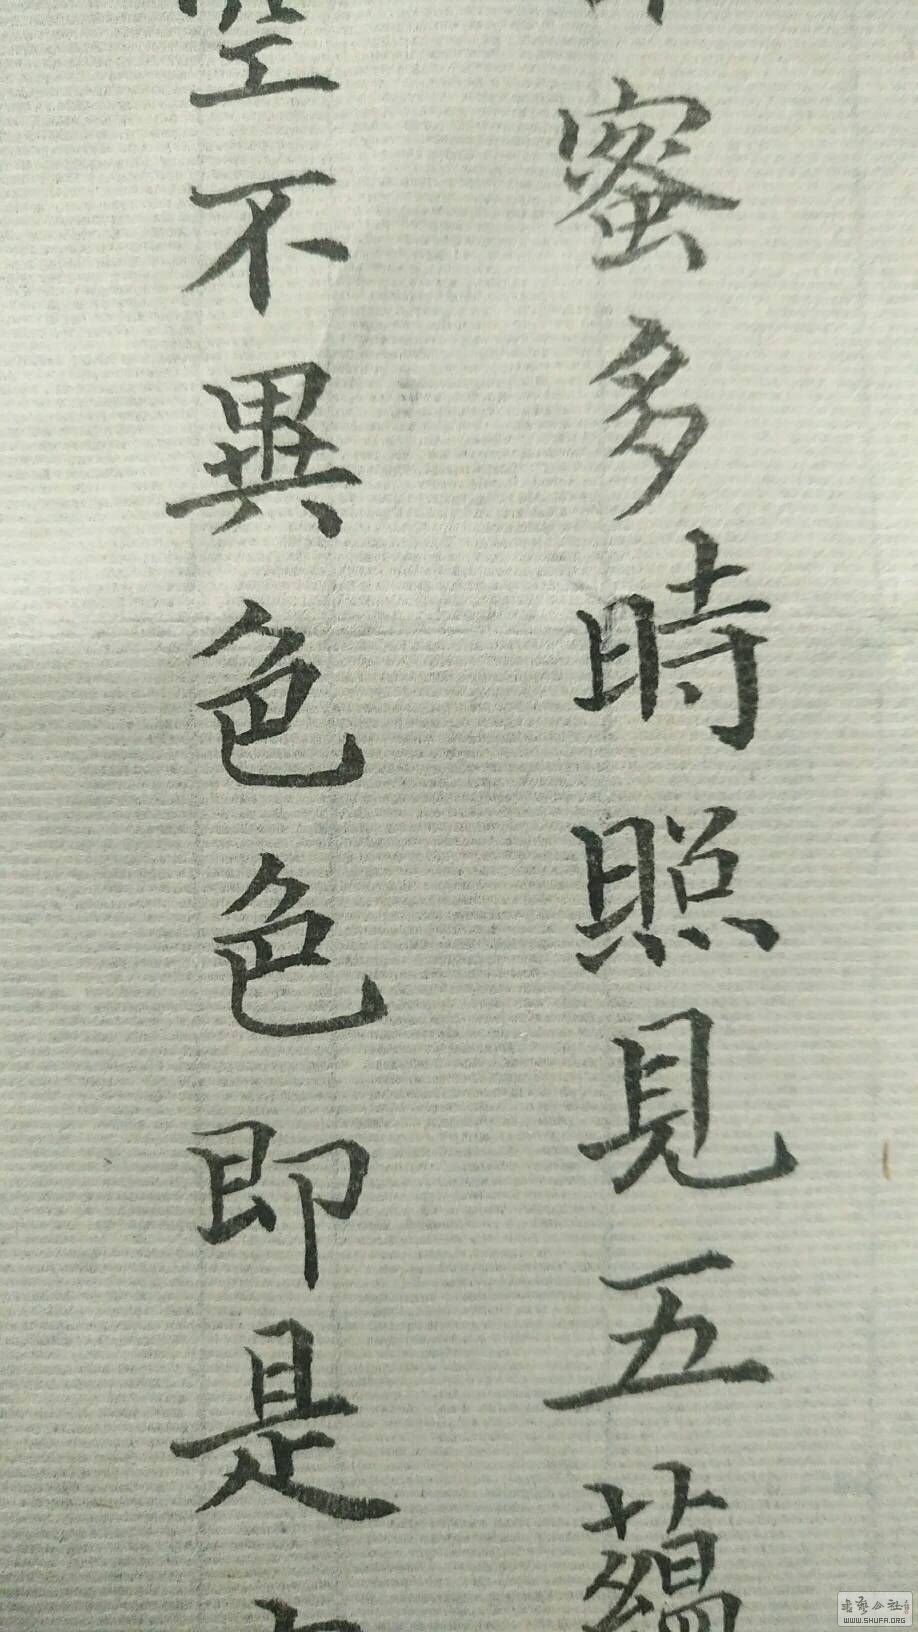 蜜多時照見五蘊
空不異色色即是
WWW.SHUFA.ORG